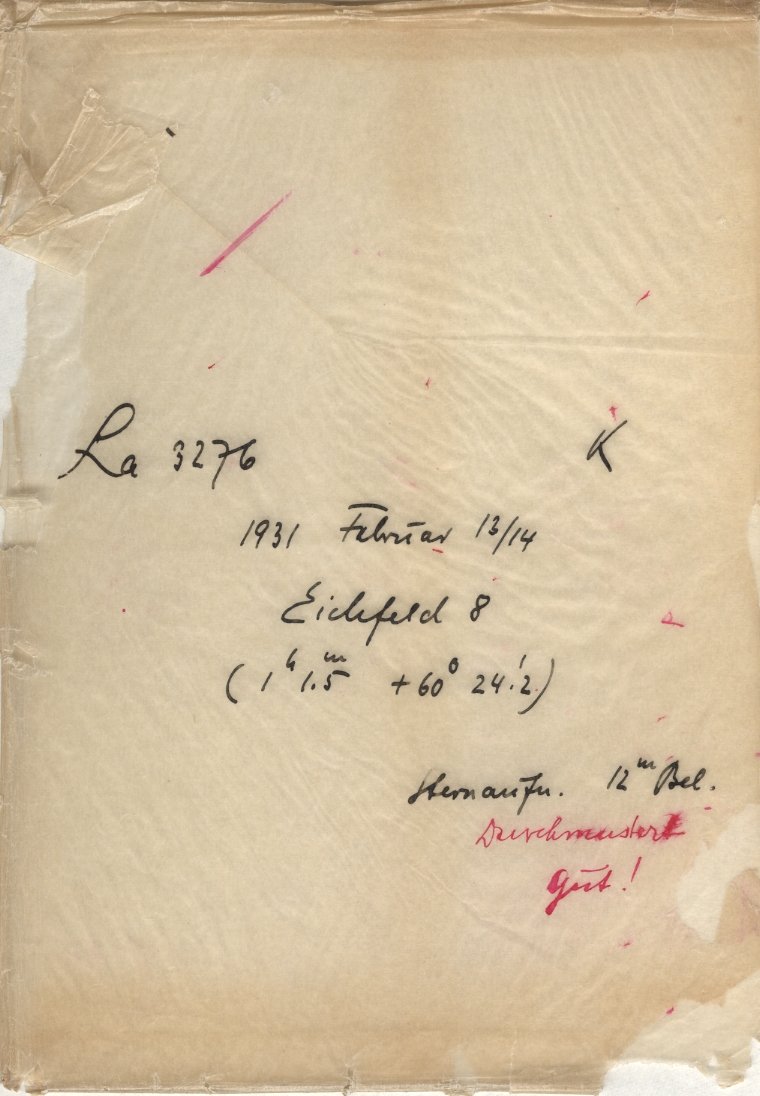 La 3276 K
1931 Februar 13/14
Eichfeld 8
(1ʰ 1.5ᵐ +60° 24.'2)
Sternaufn. 12ᵐ Bel.
Durchmustert
gut!